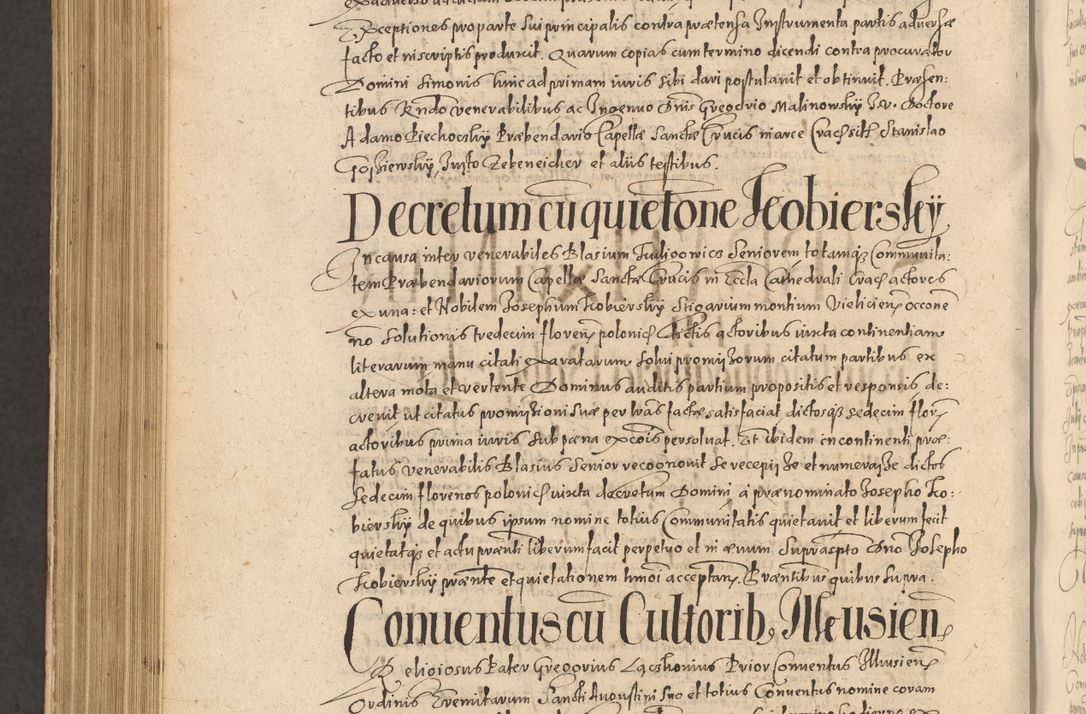 Exceptiones pro parte sui principalis contra prætensa Instrumenta partis adversæ
facto et in scriptis produxit. Quarum copias cum termino dicendi contra procurator
Domini Simonis hinc ad primam iuris sibi dari postulavit et obtinuit. Præsen:
tibus Rndo venerabilibus ac Ingenuo Dnis Gregorio Malinowskÿ I. V. Doctore
Adamo Piechocskÿ Præbendario Capellæ Sanctæ Crucis in arce Stanislao
Justo Zebeneicher et aliis testibus.
Decretum cũ quietõne Kobierskÿ
In causa inter venerabiles Blasium Seniorem totamqȝ Communita:
tem Præbendariorum Capellæ Sanctæ Crucis in Eccla Cathedrali Crac actores
ex una: et Nobilem Josephum Kobierskÿ montium Vielicien occone
nõ solutionis tredecim floren polonic dictis actoribus iuxta continentiam
literarum manu citati exaratarum solvi promissorum citatum partibus ex
altera mota et vertente Dominus auditis partium propositis et responsis de:
crevit ut citatus promissioni suæ per lras factæ satisfaciat dictosqȝ sedecim flor
actoribus prima iuris sub pæna excois persolvat. Et ibidem in continenti præ:
fatus venerabilis Blasius Senior recognovit se recepisse et numerasse dictos
sedecim florenos polonic iuxta decretum Domini à prænominato Josepho Ko:
bierskÿ de quibus ipsum nomine totius Communitatis quietavit et liberum fecit
quietatqȝ et actu prænti liberum facit perpetuo et in ævum suprascpto Dno Josepho
Kobierskÿ prænte et quietationem hmõi acceptan. Præntibus quibus supra.
Conventus cũ Cultorib, Ilkusien
Religiosus Pater Gregorius Prior Conventus Illkusien
Ordinis Eremitarum Sancti Augustini suo et totius Conventus nomine coram